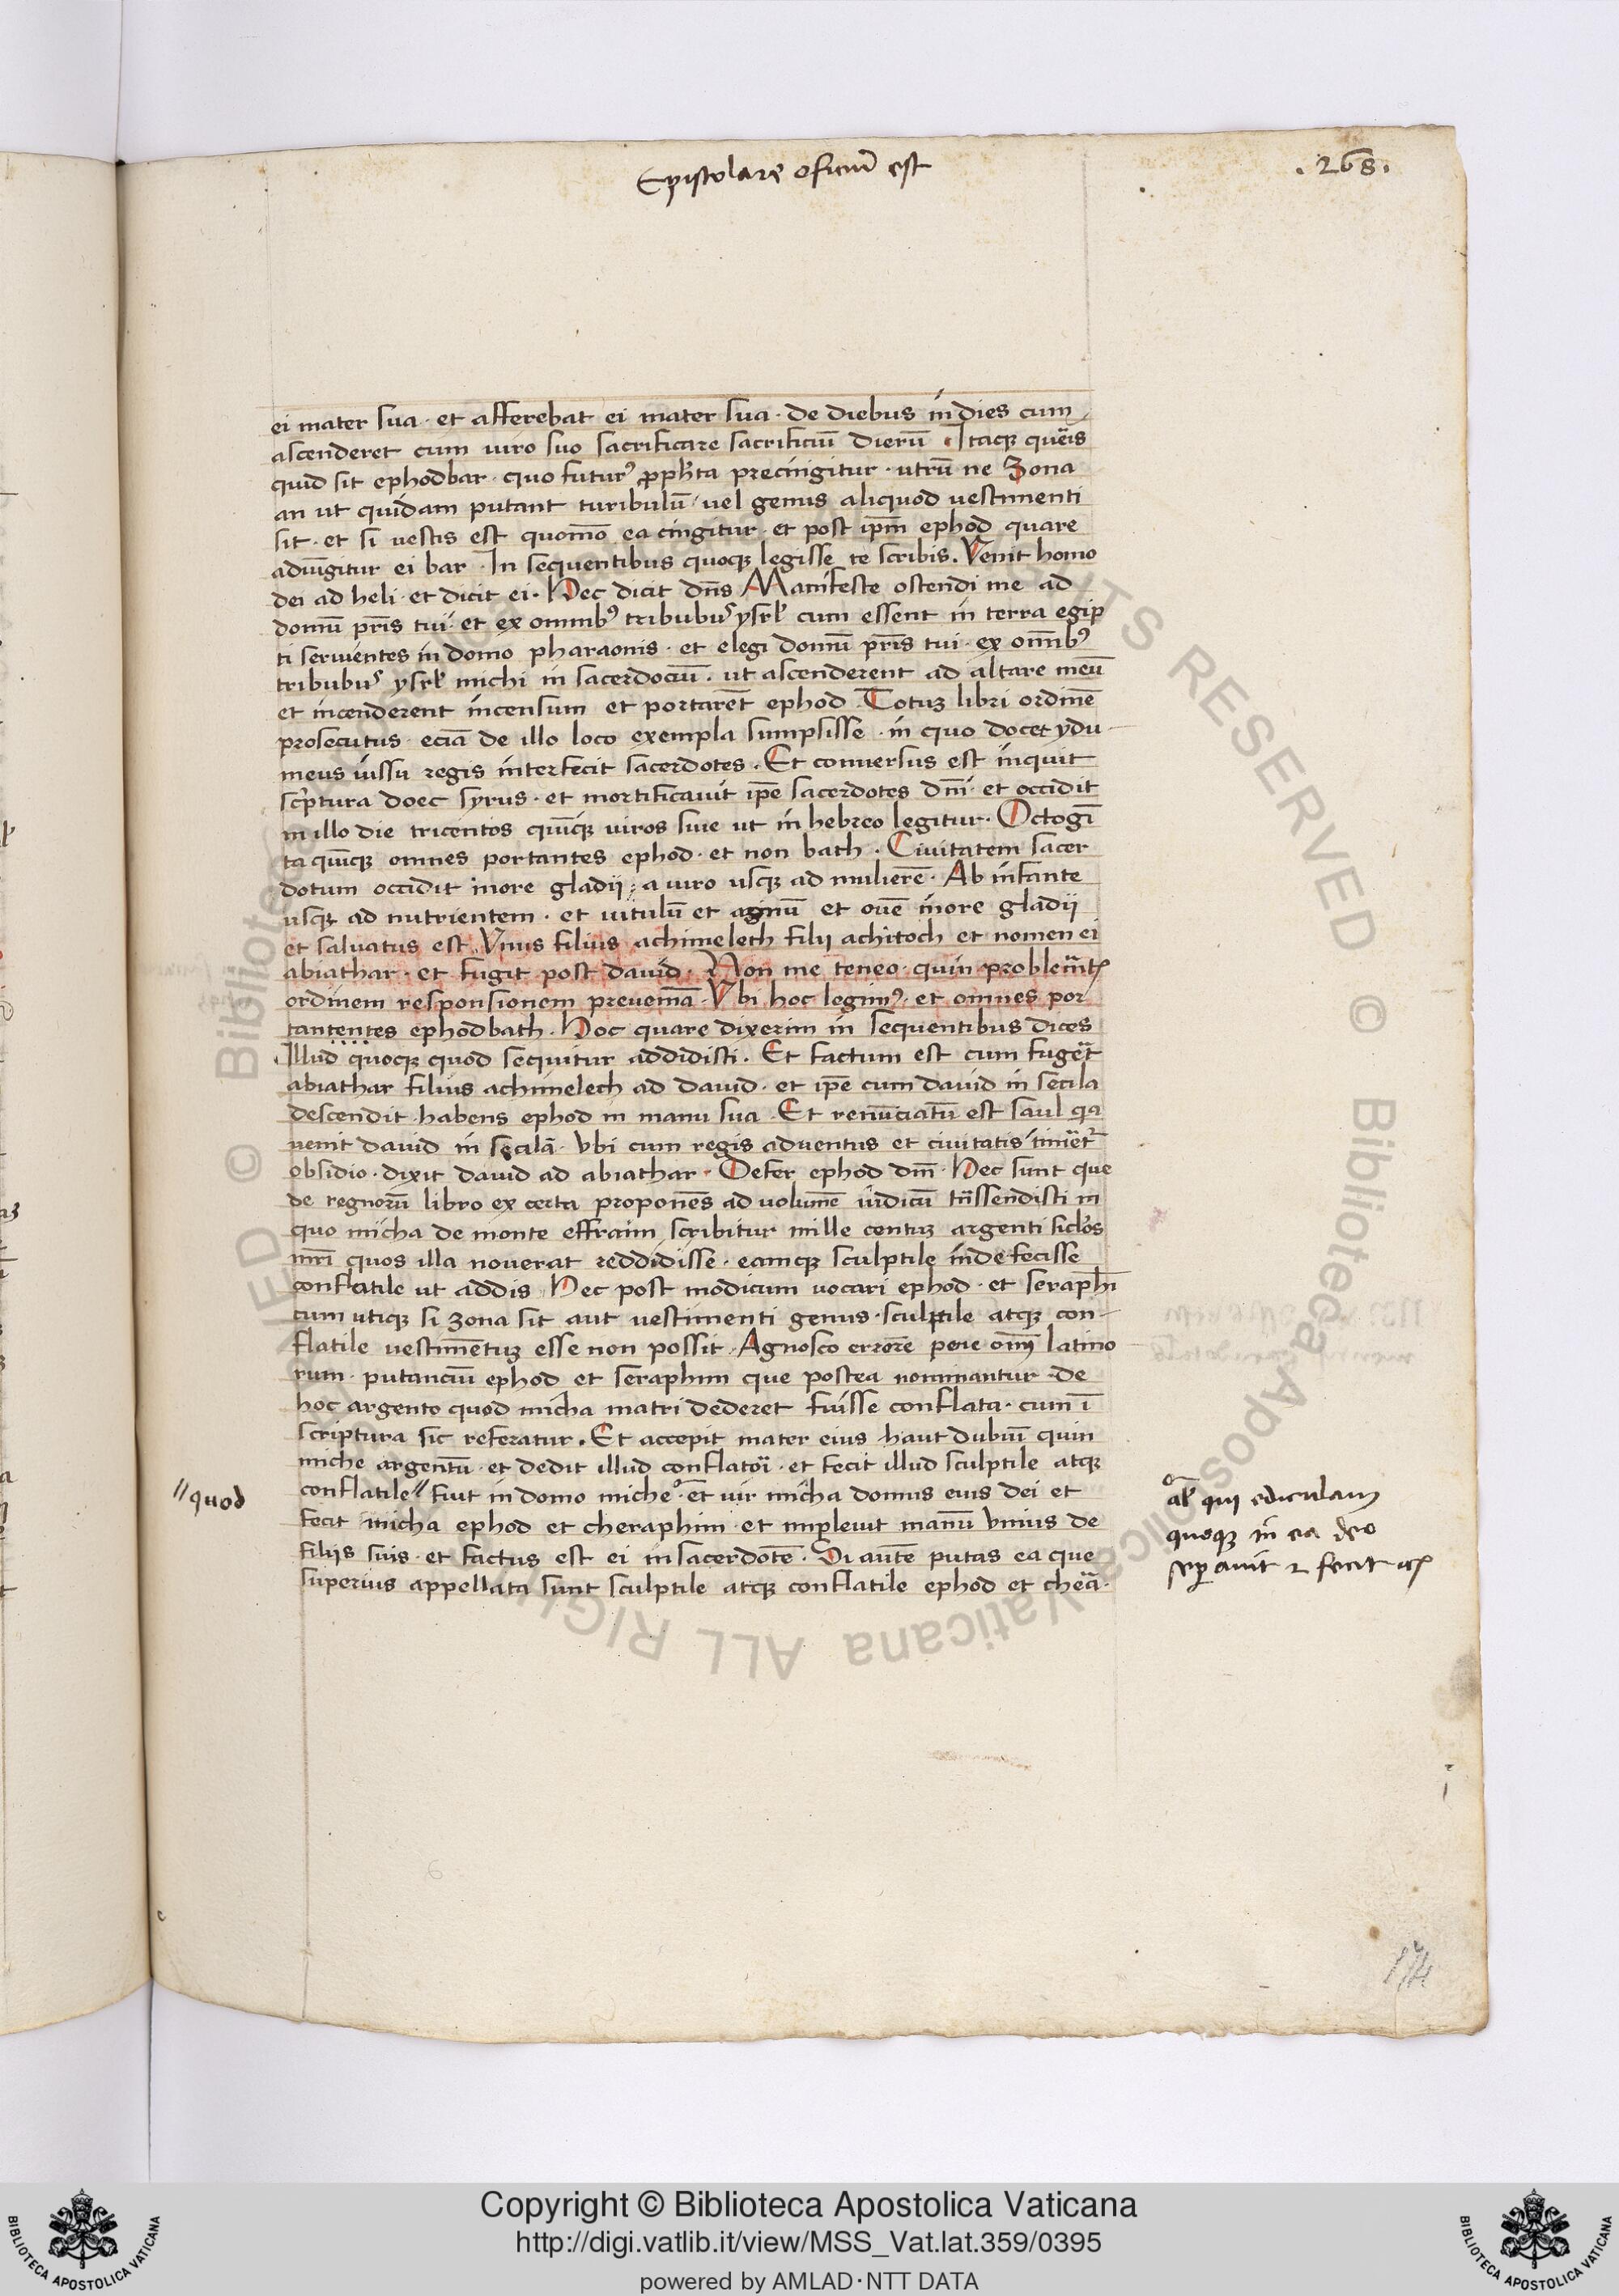 Epistolare oficiū est
.268.
ei mater sua · et afferebat ei mater sua · de diebus in dies cum
ascenderet cum uiro suo sacrificare sacrificiū dierū · Itaqꝫ queris
quid sit ephodbar · quo futurꝰ ꝓph̄ta precingitur · utrū ne zona
an ut quidam putant turibulū · uel genus aliquod uestimenti
sit · et si uestis est quomo͞ ea cingitur · et post ip̄m ephod quare
adiūgitur ei bar · In sequentibus quoqꝫ legisse te scribis. Venit homo
dei ad heli · et dicit ei · Hec dicit dn̄s Manifeste ostendi me ad
domū pr̄is tui · et ex omnibꝰ tribubꝰ ysrl̄ cum essent in terra egip
ti seruientes in domo pharaonis · et elegi domū pr̄is tui · ex om̄ibꝰ
tribubꝰ ysrl̄ michi in sacerdociū · ut ascenderent ad altare meū
et incenderent incensum et portarēt ephod · Totuꝫ libri ordinē
prosecutus · eciā de illo loco exempla sumpsisse · in quo docet ydu-
meus iussu regis interfecit sacerdotes · Et conuersus est inquit
scͥptura doec syrus · et mortificauit ip̄e sacerdotes dn̄i · et occidit
in illo die tricentos quīqꝫ uiros siue ut in hebreo legitur · Octogī
ta quīqꝫ omnes portantes ephod · et non bath · Ciuitatem sacer
dotum occidit inore gladij · a uiro usqꝫ ad mulierē · Ab infante
usqꝫ ad nutrientem · et uitulū et agnū et ouē inore gladij
et saluatus est Vnus filius achimelech filii achitoch et nomen ei
abiathar · et fugit post dauid · Non me teneo · quin problematꝭ
ordinem responsionem preueniā · Vbi hoc legimꝰ · et omnes por
tantentes ephodbath · Hoc quare dixerim in sequentibus dices
Illud quoqꝫ quod sequitur addidisti · Et factum est cum fugeret
abiathar filius achimelech ad dauid · et ip̄e cum dauid in secila
descendit · habens ephod in manu sua · Et renūciatū est saul qꝛ
uenit dauid in secilā · Vbi cum regis aduentus et ciuitatis timeretur
obsidio · dixit dauid ad abiathar · Defer ephod dn̄i · Hec sunt que
de regnorū libro ex certa proponēs ad uolumē iudicū trāssendisti in
quo micha de monte effraim scribitur mille centuꝫ argenti siclos
mr̄i quos illa nouerat reddidisse · eamqꝫ sculptile inde fecisse
conflatile ut addis · Hec post modicum uocari ephod · et seraphī
cum utiqꝫ si zona sit aut uestimenti genus · sculptile atqꝫ con-
flatile uestimentuꝫ esse non possit · Agnosco errorē pene om̄ latino
rum · putanciū ephod et seraphim que postea nominantur · de
hoc argento quod micha matri dederet fuisse conflata · cum ī
scriptura sic referatur · Et accepit mater eius haut dubiū quin
miche argentū · et dedit illud conflatori · et fecit illud sculptile atqꝫ
conflatile // fuit in domo miche · et uir micha domus eius dei et
fecit micha ephod et cheraphim · et impleuit manū vnius de
filijs suis · et factus est ei in sacerdotē · Si autē putas ea que
superius appellata sunt sculptile atqꝫ conflatile ephod et chera·
//quod
al̄ qui ediculam
quoqꝫ in ea deo
seꝑauit ⁊ fecit
Copyright © Biblioteca Apostolica Vaticana
http://digi.vatlib.it/view/MSS_Vat.lat.359/0395
powered by AMLAD·NTT DATA
BIBLIOTECA APOSTOLICA VATICANA
BIBLIOTECA APOSTOLICA VATICANA